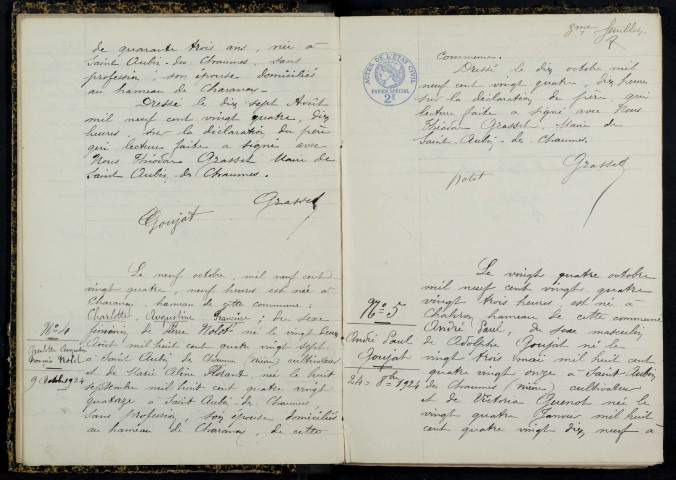 de quarante trois ans, née à
Saint Aubin des Chaumes, sans
profession, son épouse domiciliés
au hameau de Charancy.
Dressé le dix sept Août
mil neuf cent vingt quatre, dix
heures, sur la déclaration du père
qui lecture faite a signé avec
Nous Théodore Grasset Maire de
Saint Aubin des Chaumes.
Grasset
Goujat
Le neuf octobre, mil neuf cent
vingt quatre, neuf heures est née à
Charancy hameau de cette commune;
Charlotte, Augustine Francine; du sexe
féminin, de Nolot né le vingt deux
Août mil huit cent quatre vingt sept
à Saint Aubin des Chaumes (Nièvre) cultivateur
et de Marie Aline née le huit
septembre mil huit cent quatre vingt
quatorze à Saint Aubin des Chaumes
sans profession, son épouse domiciliés
au hameau de Charancy, de cette
No 4
Charlotte Augustine
Francine Nolot
9 Octobre 1924
3me feuillet
R
ACTES DE L'ETAT CIVIL
PAPIER SPECIAL
2F
Commune.
Dressé le dix octobre mil
neuf cent vingt quatre, dix heures
sur la déclaration du père qui
lecture faite a signé avec Nous
Théodore Grasset, Maire de
Saint-Aubin-des-Chaumes.
Grasset
Nolot
Le vingt quatre octobre
mil neuf cent vingt quatre
vingt trois heures est né à
hameau de cette commune
André Paul, de sexe masculin
de Adolphe Goujat né le
vingt trois mai mil huit cent
quatre vingt onze à Saint Aubin
des Chaumes (Nièvre) cultivateur
et de Victoria Guenot née le
vingt quatre Janvier mil huit
cent quatre vingt dix neuf à
No 5
André Paul
Goujat
24 8bre 1924